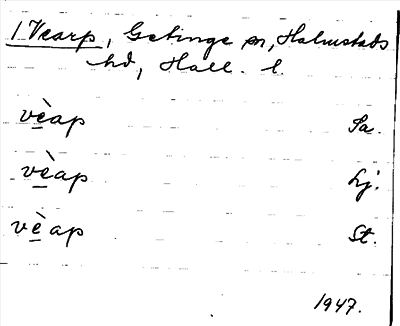 1 Vearp, Getinge sn, Halmstads
hd, Hall. l.
vèap Sa.
vèap Lj.
vèap St.
1947.